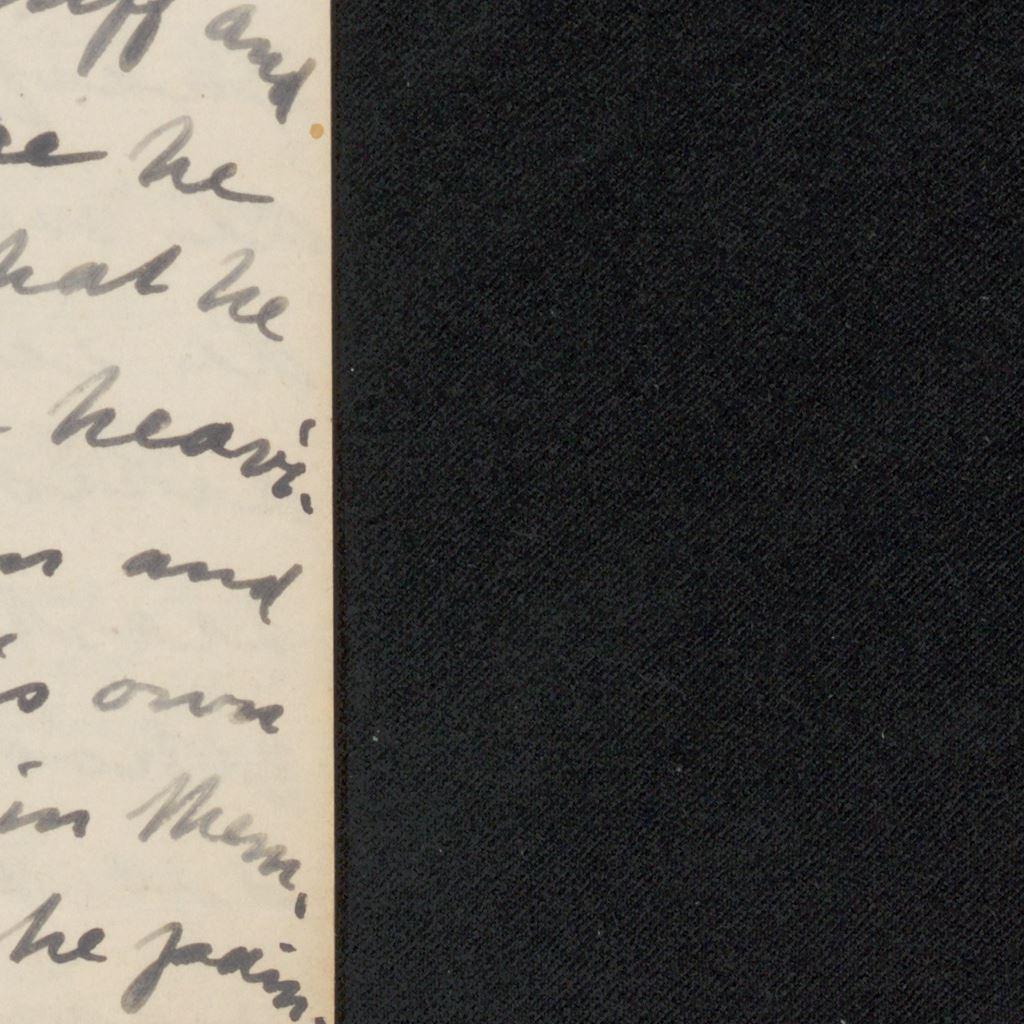 and
he
hat he
heavi-
and
is own
in them,
he